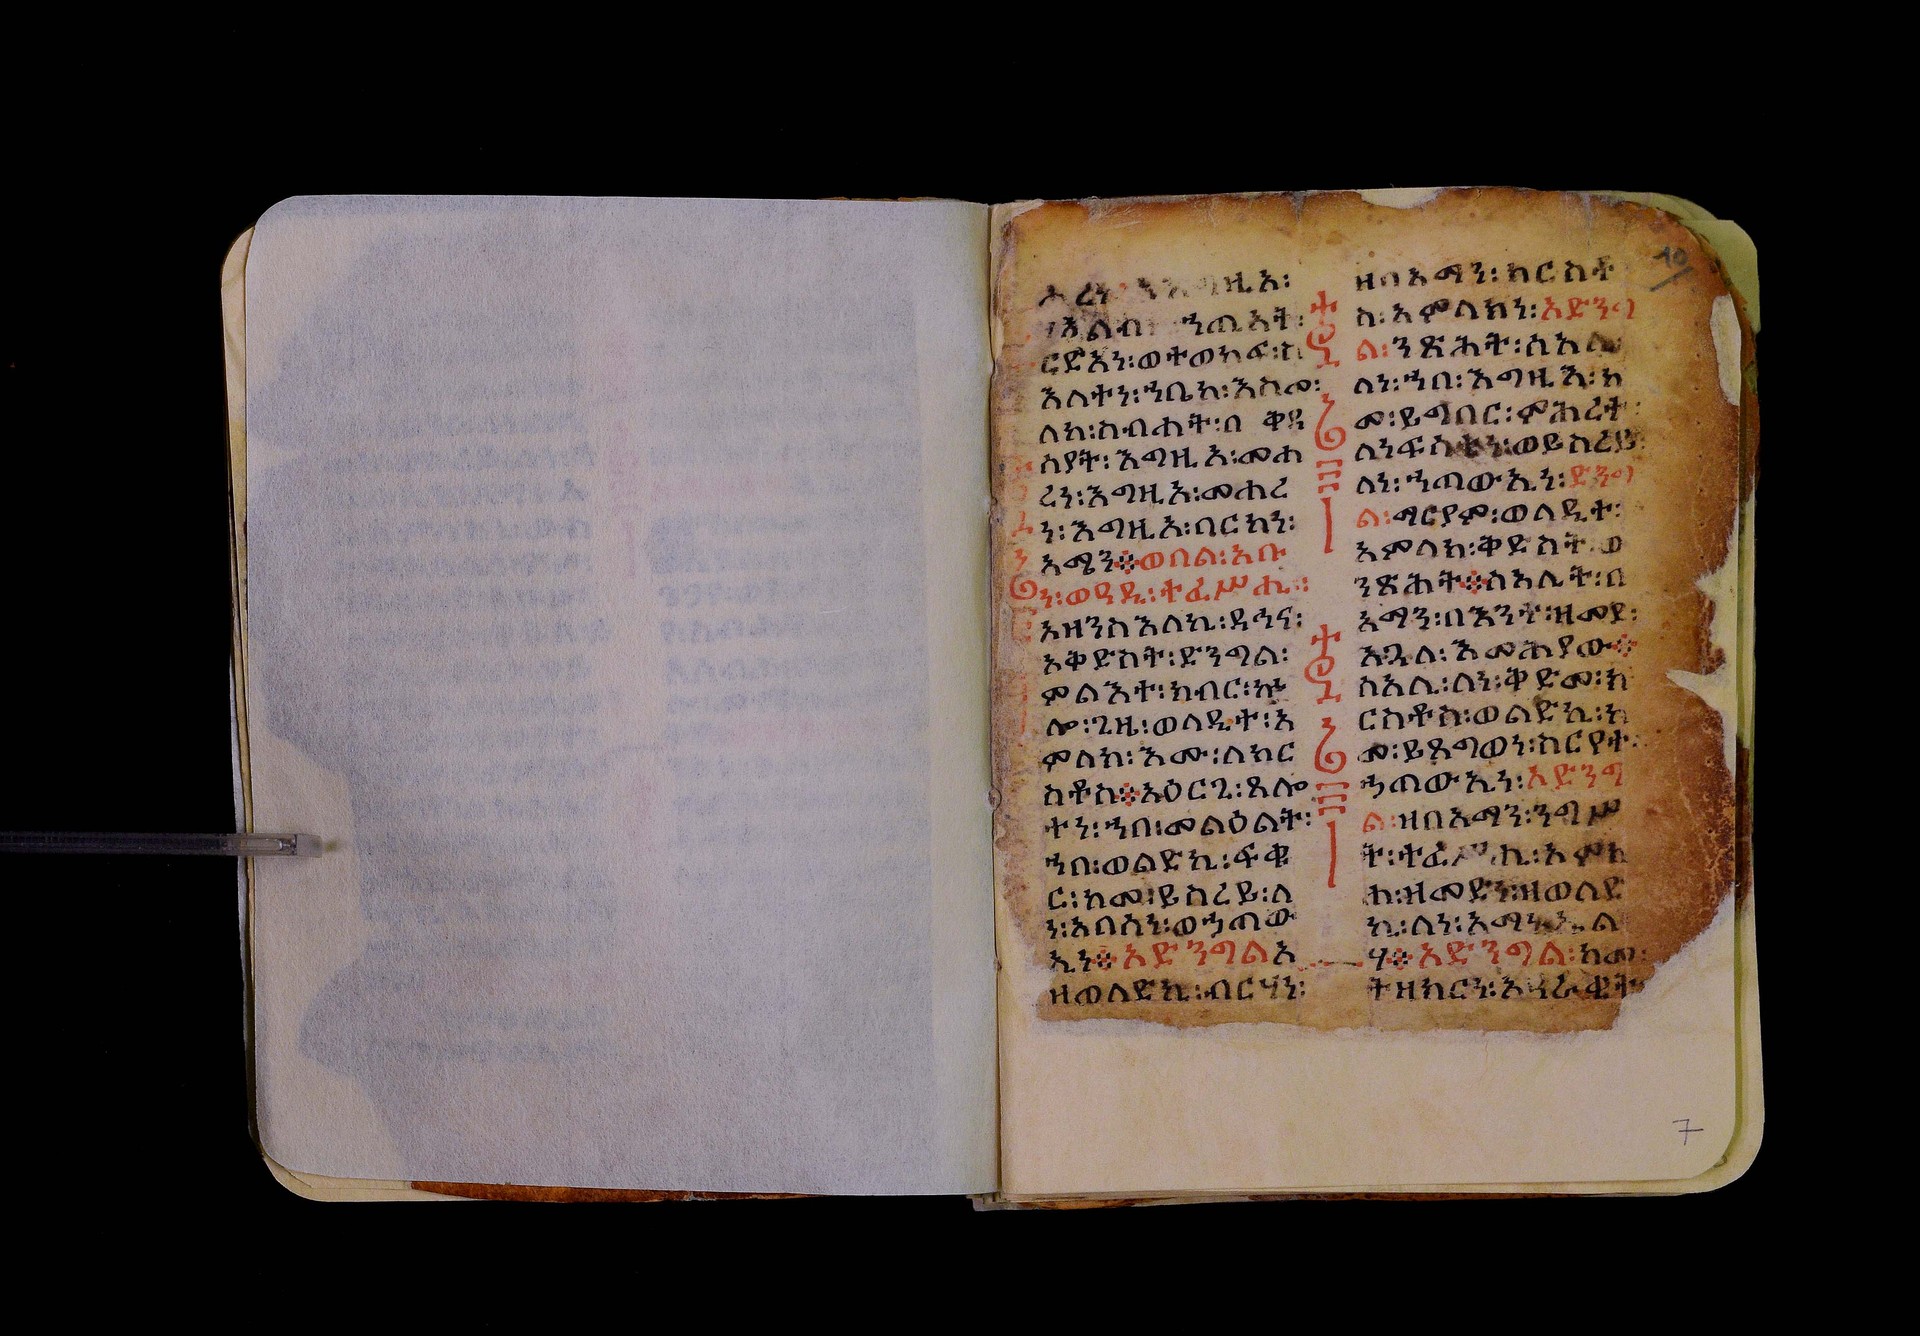 እግዚአ፡
ርድአነ፡ወተወከፍ፡ስ
እለተነ፡ኀቤከ፡እስመ፡
ለከ፡ስብሐት፡በ ቅዳ
ሴያት፡ እግዚአ፡መሐ
ረነ፡እግዚአ፡መሐረ
ነ፡እግዚአ፡ባርከነ፡
አሜን፨ወበል፡አቡ
ነ፡ወዓዲ፡ተፈሥሒ፡
አዘንስእለኪ፡ዳኅና፡
አቅድስት፡ድንግል፡
ምልእተ፡ክብር፡ኵ
ሎ፡ጊዜ፡ወላዲተ፡አ
ምላክ፡እሙ፡ለክር
ስቶስ፨አዕርጊ፡ጸሎ
ተነ፡ኀበ፡መልዕልት፡
ኀበ፡ወልድኪ፡ፍቁ
ር፡ከመ፡ይስረይ፡ለ
ነ፡አበሳነ፡ወኃጣው
ኢነ፨አድንግልአ
ዘወለድኪ፡ብርሃነ፡
ዘበአማን፡ክርስቶ
ስ፡አምላክነ፡አድንግ
ል፡ንጽሕት፡ስአሊ
ለነ፡ኀበ፡እግዚእ፡ከ
መ፡ይግበር፡ምሕረተ፡
ለነፍሳቲነ፡ወይስረይ፡
ለነ፡ኀጣውኢነ፡ድንግ
ል፡ማርያም፡ወላዲተ፡
አምላክ፡ቅድስት፡ወ
ንጽሕት፨ሰአሊት፡በ
አማን፡በእንተ፡ዘመደ፡
እጓለ፡እመሕያው፨
ሰአሊ፡ለነ፡ቅድመ፡ክ
ርስቶስ፡ወልድኪ፡ከ
መ፡ይጸግወነ፡ስርየተ፡
ኃጣውኢነ፡አድንግ
ል፡ዘበአማን፡ንግሥ
ት፡ተፈሥሒ፡አምክ
ሐ፡ዝመድነ፡ዘወለድ
ኪ፡ለነ፡አማኑኤል
ሃ፨አድንግል፡ከመ፡
ትዘክርነ፡
10
7